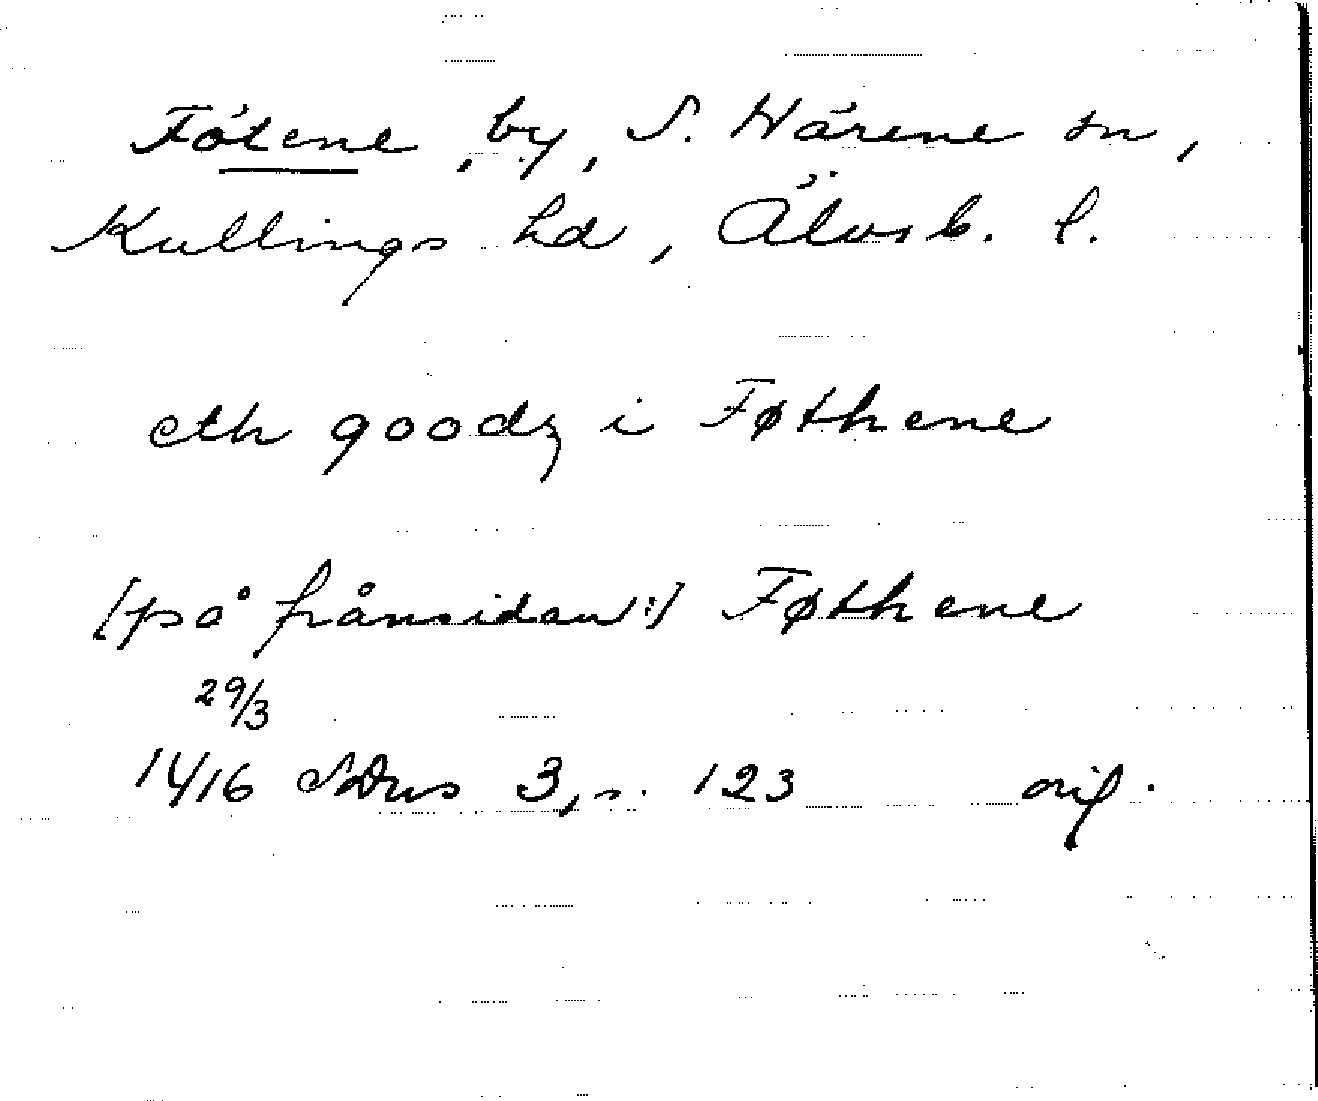 Fötene, by, S. Härene sn,
Kullings hd, Älvsb. l.
eth goodz i Føthene
[på frånsidan:] Føthene
29/3
1416 SDns 3, s. 123 orig.